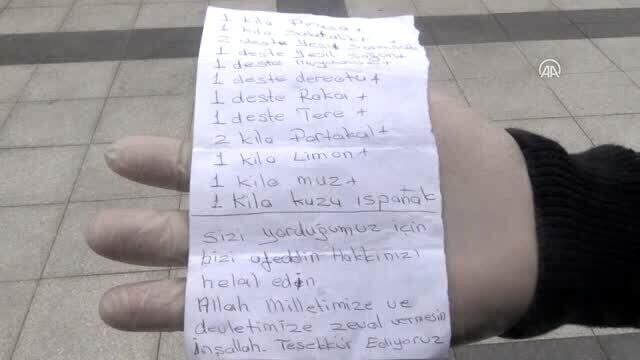 1 kilo Pırasa +
1 kilo Salatalık +
2 deste Yeşil
1 deste Yeşil Soğan +
1 deste Maydanoz +
1 deste dereotu +
1 deste Roka +
1 deste Tere +
2 kilo Portakal +
1 kilo Limon +
1 kilo muz +
1 kilo kuzu ıspanak
Sizi yorduğumuz için
bizi afeddin Hakkınızı
helal edin
Allah Milletimize ve
devletimize zeval vermesin
inşallah. Teşekkür Ediyoruz
AA